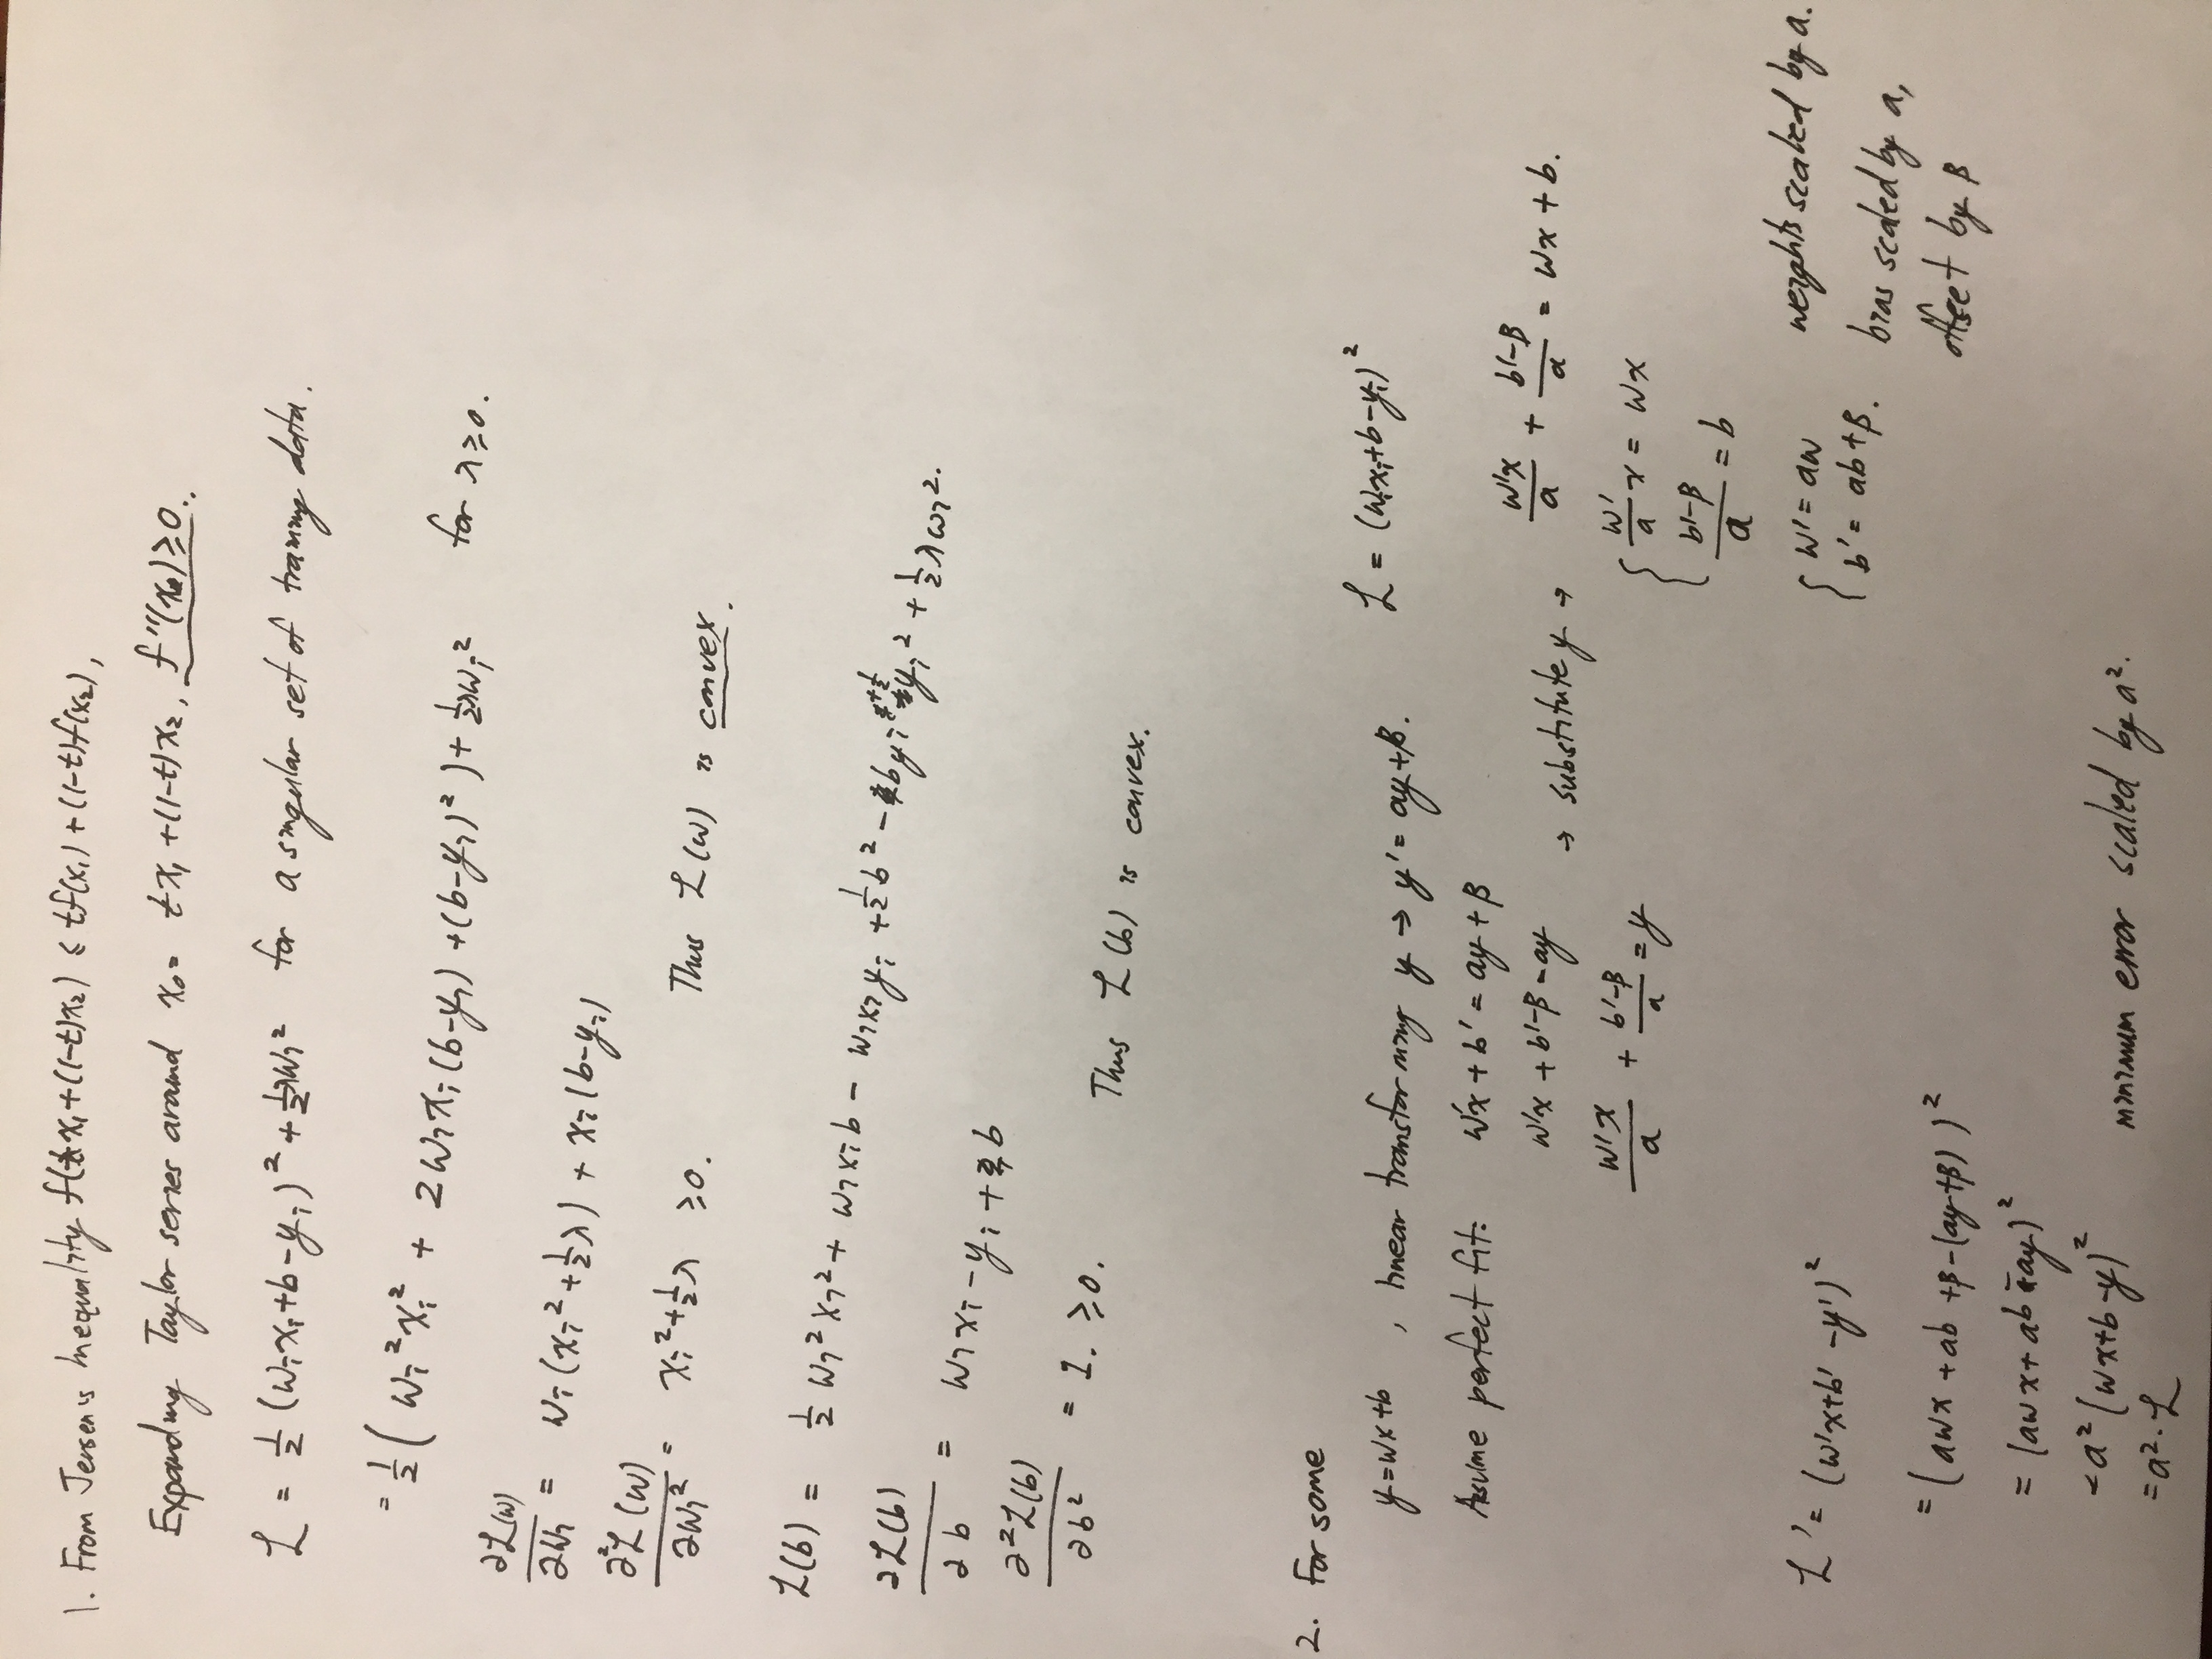 1. From Jensen's Inequality f(tx₁+(1-t)x₂) ≤ tf(x₁)+(1-t)f(x₂),
Expanding Taylor series around x₀= tx₁+(1-t)x₂, f''(x₀)≥0.
ℒ = 1/2 (wᵢxᵢ+b-yᵢ)² + 1/2λwᵢ² for a singular set of training data.
= 1/2 ( wᵢ²xᵢ² + 2wᵢxᵢ(b-yᵢ) +(b-yᵢ)² )+ 1/2λwᵢ² for λ≥0.
∂ℒ(w)/∂wᵢ = wᵢ(xᵢ²+1/2λ) + xᵢ(b-yᵢ)
∂²ℒ(w)/∂wᵢ² = xᵢ²+1/2λ ≥0. Thus ℒ(w) is convex.
ℒ(b) = 1/2 wᵢ²xᵢ² + wᵢxᵢb - wᵢxᵢyᵢ +1/2b² - byᵢ +1/2yᵢ² + 1/2λwᵢ².
∂ℒ(b)/∂b = wᵢxᵢ-yᵢ+b
∂²ℒ(b)/∂b² = 1. ≥0. Thus ℒ(b) is convex.
2. For some
y=wx+b , linear transforming y → y'= ay+β. ℒ = (wᵢxᵢ+b-yᵢ)²
Assume perfect fit: w'x + b' = ay + β
w'x + b'-β = ay
w'x/a + b'-β/a = y
→ substitute y → w'x/a + b'-β/a = wx + b.
{ w'/a x = wx
b'-β/a = b
{ w' = aw weights scaled by a.
b' = ab+β. bias scaled by a,
offset by β
ℒ' = (w'x+b'-y')²
= (awx +ab +β-(ay+β) )²
= (awx+ab-ay)²
= a²(wx+b-y)²
= a²·ℒ minimum error scaled by a².